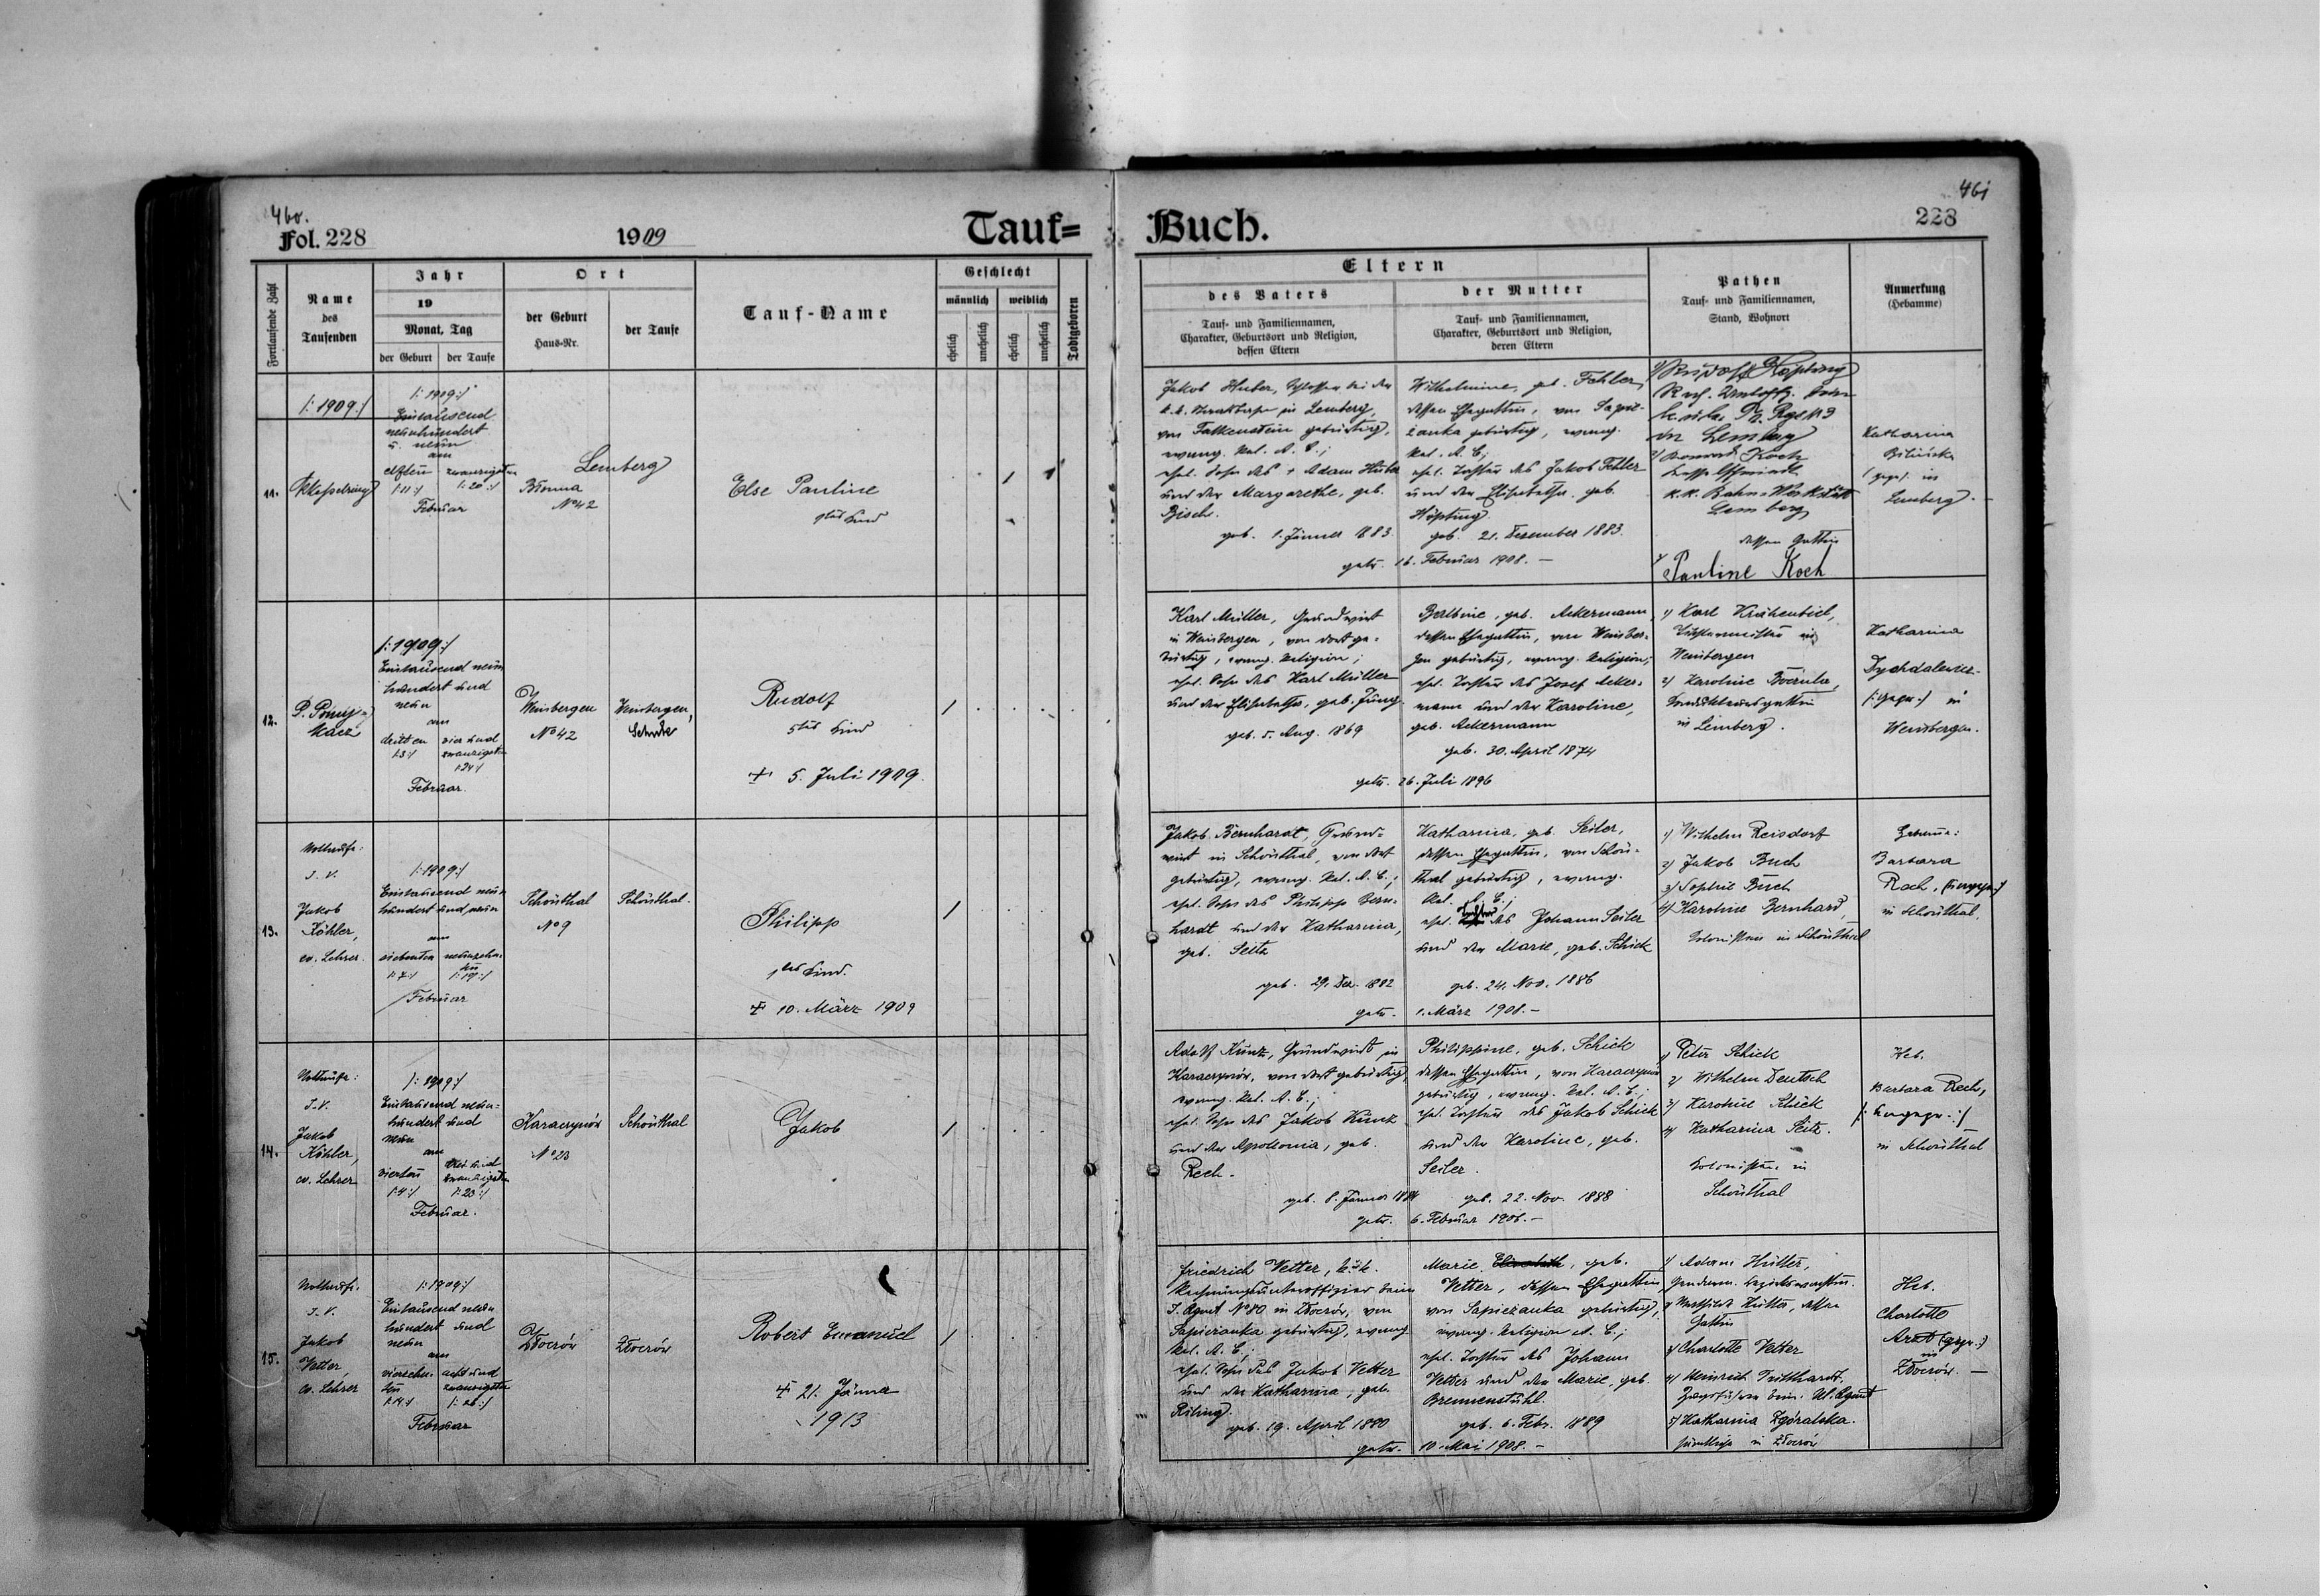 460.
Fol. 228
1909
Tauf=
Fortlaufende Zahl
Name
des
Taufenden
Jahr
19
Monat, Tag
der Geburt
der Taufe
Ort
der Geburt
Haus-Nr.
der Taufe
Tauf-Name
Geschlecht
männlich
weiblich
ehelich
unehelich
ehelich
unehelich
Todtgeboren
/: 1909 :/
11.
/: 1909 :/
Eintausend
neunhundert
u. neun
am
elften
/: 11 :/
zwanzigsten
/: 20 :/
Februar
Lemberg
No 42
Else Pauline
1tes Kind
1
12.
/: 1909 :/
Eintausend neun
hundert und
neun
am
dritten
/: 3 :/
vier und
zwanzigsten
/: 24 :/
Februar.
Weinbergen
No 42
Weinbergen,
Schule
Rudolf
5tes Kind
+ 5. Juli 1909.
13.
Nottaufe:
J. V.
Jakob
Köhler,
ev. Lehrer.
/: 1909 :/
Eintausend neun
hundert und neun
am
siebenten
/: 7 :/
neunzehn-
ten
/: 19 :/
Februar
Schönthal
No 9
Schönthal.
Philipp
1tes Kind.
+ 10. März 1909
14.
Nottaufe:
J. V.
Jakob
Köhler,
ev. Lehrer
/: 1909 :/
Eintausend neun-
hundert und
neun
am
vierten
/: 4 :/
drei und
zwanzigsten
/: 23 :/
Februar.
Karaczynów
No 23
Schönthal
Jakob
15.
Nottaufe.
J. V.
Jakob
Vetter,
ev. Lehrer
/: 1909 :/
Eintausend neun
hundert und
neun
am
vierzehn-
ten
/: 14 :/
acht und
zwanzigsten
/: 28 :/
Februar
Złoczów
Złoczów
Robert Emanuel
+ 21. Jänner
1913
461
Buch.
228
Eltern
des Vaters
Tauf- und Familiennamen,
Charakter, Geburtsort und Religion,
dessen Eltern
der Mutter
Tauf- und Familiennamen,
Charakter, Geburtsort und Religion,
deren Eltern
Pathen
Tauf- und Familiennamen,
Stand, Wohnort
Anmerkung
(Hebamme)
Jakob Huber, Schlosser bei der
in Lemberg,
von Falkenstein gebürtig,
evang. Rel. A. C.;
ehel. Sohn des + Adam Huber
und der Margarethe, geb.
Bisch.
geb. 1. Jänner 1883.
Wilhelmine, geb. Fehler,
dessen Ehegattin, von Sapie-
żanka gebürtig, evang.
Rel. A. C.;
ehel. Tochter des Jakob Fehler
und der Elisabetha, geb.
Höpting.
geb. 21. Dezember 1883.
getr. 16. Februar 1908. –
1) Rudolf Höpting
in Lemberg
2) Koch
k.k. Bahn-Werkstätte
Lemberg
dessen Gattin
Pauline Koch
Katharina
in
Lemberg. –
Karl Müller, Grundwirt
in Weinbergen, von dort ge-
bürtig, evang. Religion;
ehel. Sohn des Karl Müller
und der Elisabetha, geb. Jung.
geb. 5. Aug. 1869
Balbine, geb. Ackermann,
dessen Ehegattin, von Weinber-
gen gebürtig, evang. Religion;
ehel. Tochter des Josef Acker-
mann und der Karoline,
geb. Ackermann
geb. 30. April 1874
getr. 26. Juli 1896
1) Karl Krähenbiel,
Tischlermeister in
Weinbergen
2) Karoline
in Lemberg.
Katharina
/: gepr. :/ in
Weinbergen.
Jakob Bernhardt, Grund-
wirt in Schönthal, von dort
gebürtig, evang. Rel. A. C.;
ehel. Sohn des Philipp Bern-
hardt und der Katharina,
geb. Seitz
geb. 29. Dez. 1882
Katharina, geb. Seiler,
dessen Ehegattin, von Schön-
thal gebürtig, evang.
Rel. A. C.;
ehel. Tochter des Johann Seiler
und der Marie, geb. Schick
geb. 24. Nov. 1886
getr. 1. März 1908. –
1) Wilhelm Reisdorf
2) Jakob Buch
3) Sophie Buch
4) Karoline Bernhard,
Kolonisten in Schönthal
Hebamme:
Barbara
Rech, (: ungepr. :)
in Schönthal.
Adolf Kunz, Grundwirt in
Karaczynów, von dort gebürtig,
evang. Rel. A. C.;
ehel. Sohn des Jakob Kunz
und der Apollonia, geb.
Rech.
geb. 8. Jänner 1884
Philippine, geb. Schick
dessen Ehegattin, von Karaczynów
gebürtig, evang. Rel. A. C.;
ehel. Tochter des Jakob Schick
und der Karoline, geb.
Seiler.
geb. 22. Nov. 1888
getr. 6. Februar 1906. –
1) Peter Schick
2) Wilhelm Deutsch
3) Karoline Schick
4) Katharina Seitz.
Kolonisten in
Schönthal
Heb.
Barbara Rech,
/: ungepr. :/
in Schönthal
Friedrich Vetter, k.u.k.
Rechnungsunteroffizier beim
I. Rgmt No 80 in Złoczów, von
Sapieżanka gebürtig, evang.
Rel. A. C.;
ehel. Sohn des Jakob Vetter
und der Katharina, geb.
Riling.
geb. 19. April 1880
Marie, geb.
Vetter, dessen Ehegattin,
von Sapieżanka gebürtig,
evang. Religion A. C.;
ehel. Tochter des Johann
Vetter und der Marie, geb.
Brennenstuhl.
geb. 6. Febr. 1889
getr. 10. Mai 1908. –
1) Adam Hütter,
Gendarm. Bezirkswachtm.
2) Mathilde Hütter, dessen
Gattin
3) Charlotte Vetter
4) Heinrich
Zugsführer beim
5) Katharina Zgóralska.
sämtliche in Złoczów
Heb.
Charlotte
(gepr.)
in
Złoczów. –